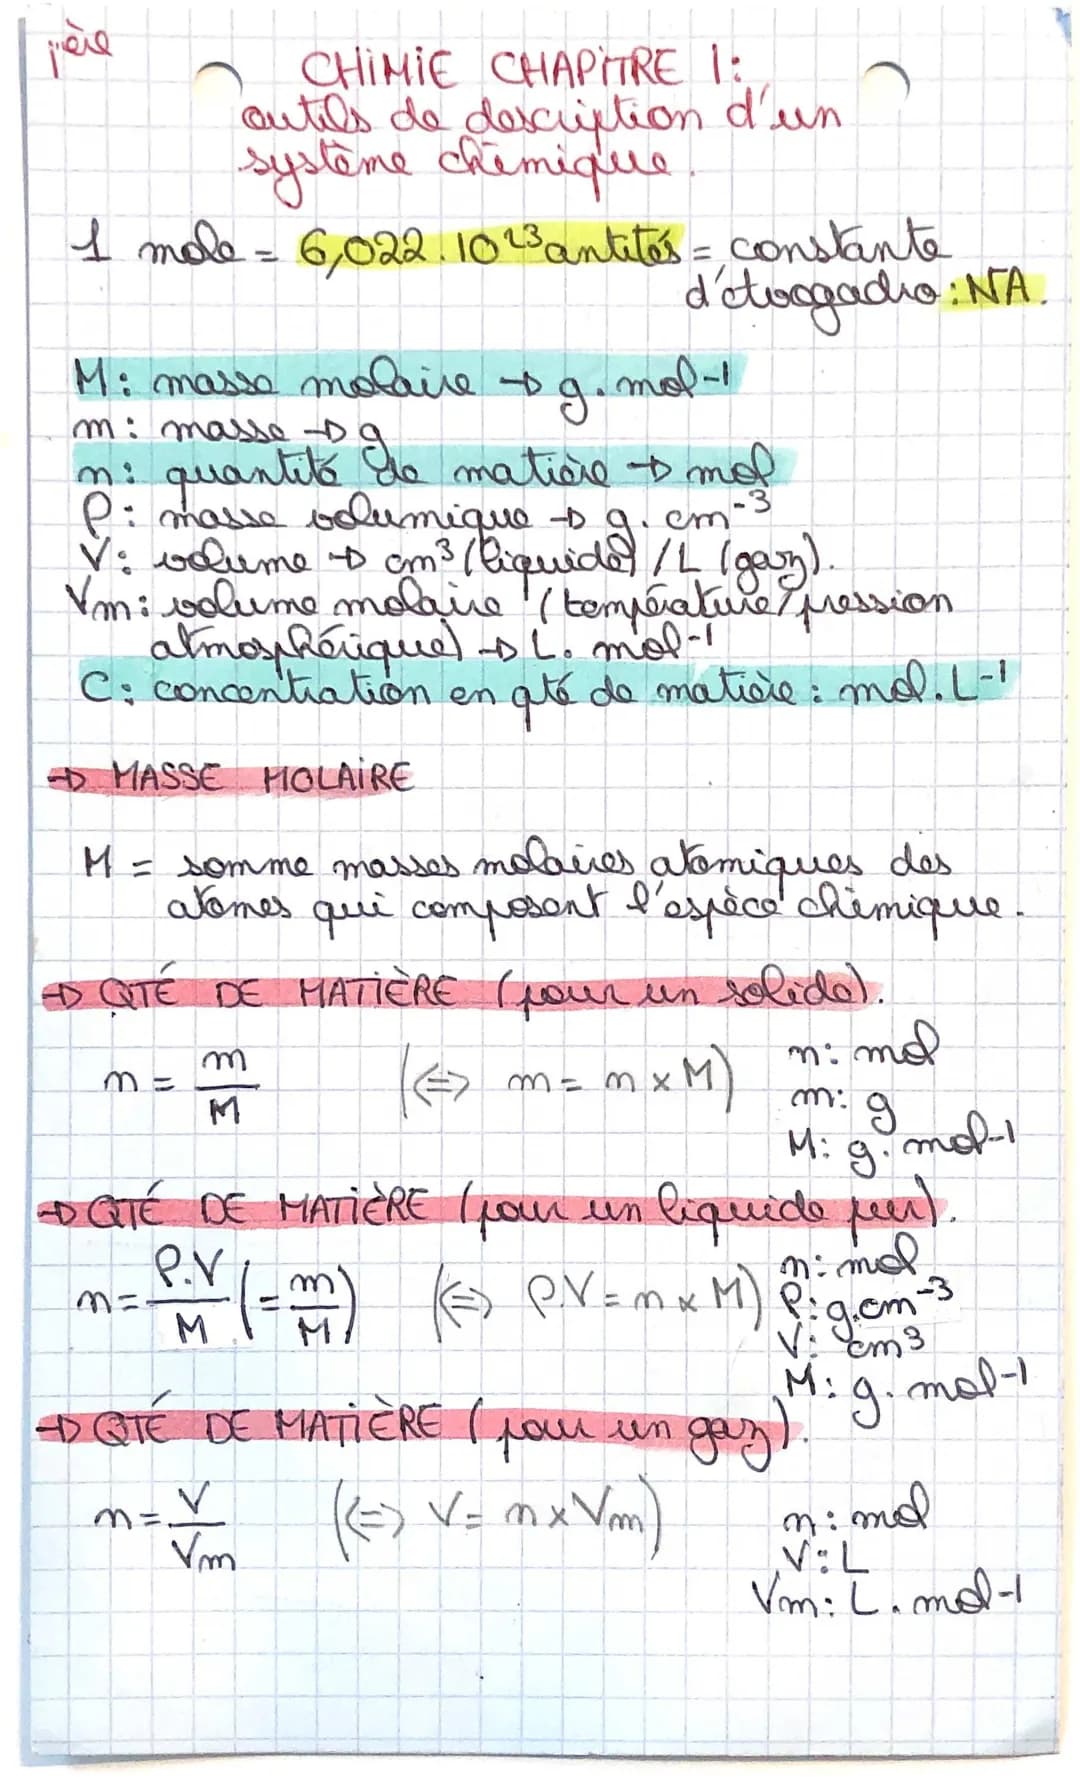 1ère
CHIMIE CHAPITRE 1:
outils de description d'un
système chimique.
1 mole = 6,022.10²³ entités = constante
d'Avogadro : NA.
M: masse molaire → g.mol-1
m: masse → g
n: quantité de matière → mol
ρ: masse volumique → g.cm⁻³
V: volume → cm³ (liquide) / L (gaz).
Vm: volume molaire (température/pression
atmosphérique) → L.mol-1
C: concentration en qté de matière : mol.L-1
→ MASSE MOLAIRE
M = somme masses molaires atomiques des
atomes qui composent l'espèce chimique.
→ QTÉ DE MATIÈRE (pour un solide).
n = m/M (⇔ m = n x M) n: mol
m: g
M: g.mol-1
→ QTÉ DE MATIÈRE (pour un liquide pur).
n = ρ.V/M (= m/M) (⇔ ρ.V = n x M) n: mol
ρ: g.cm⁻³
V: cm³
M: g.mol-1
→ QTÉ DE MATIÈRE (pour un gaz).
n = V/Vm (⇔ V = n x Vm) n: mol
V: L
Vm: L.mol-1